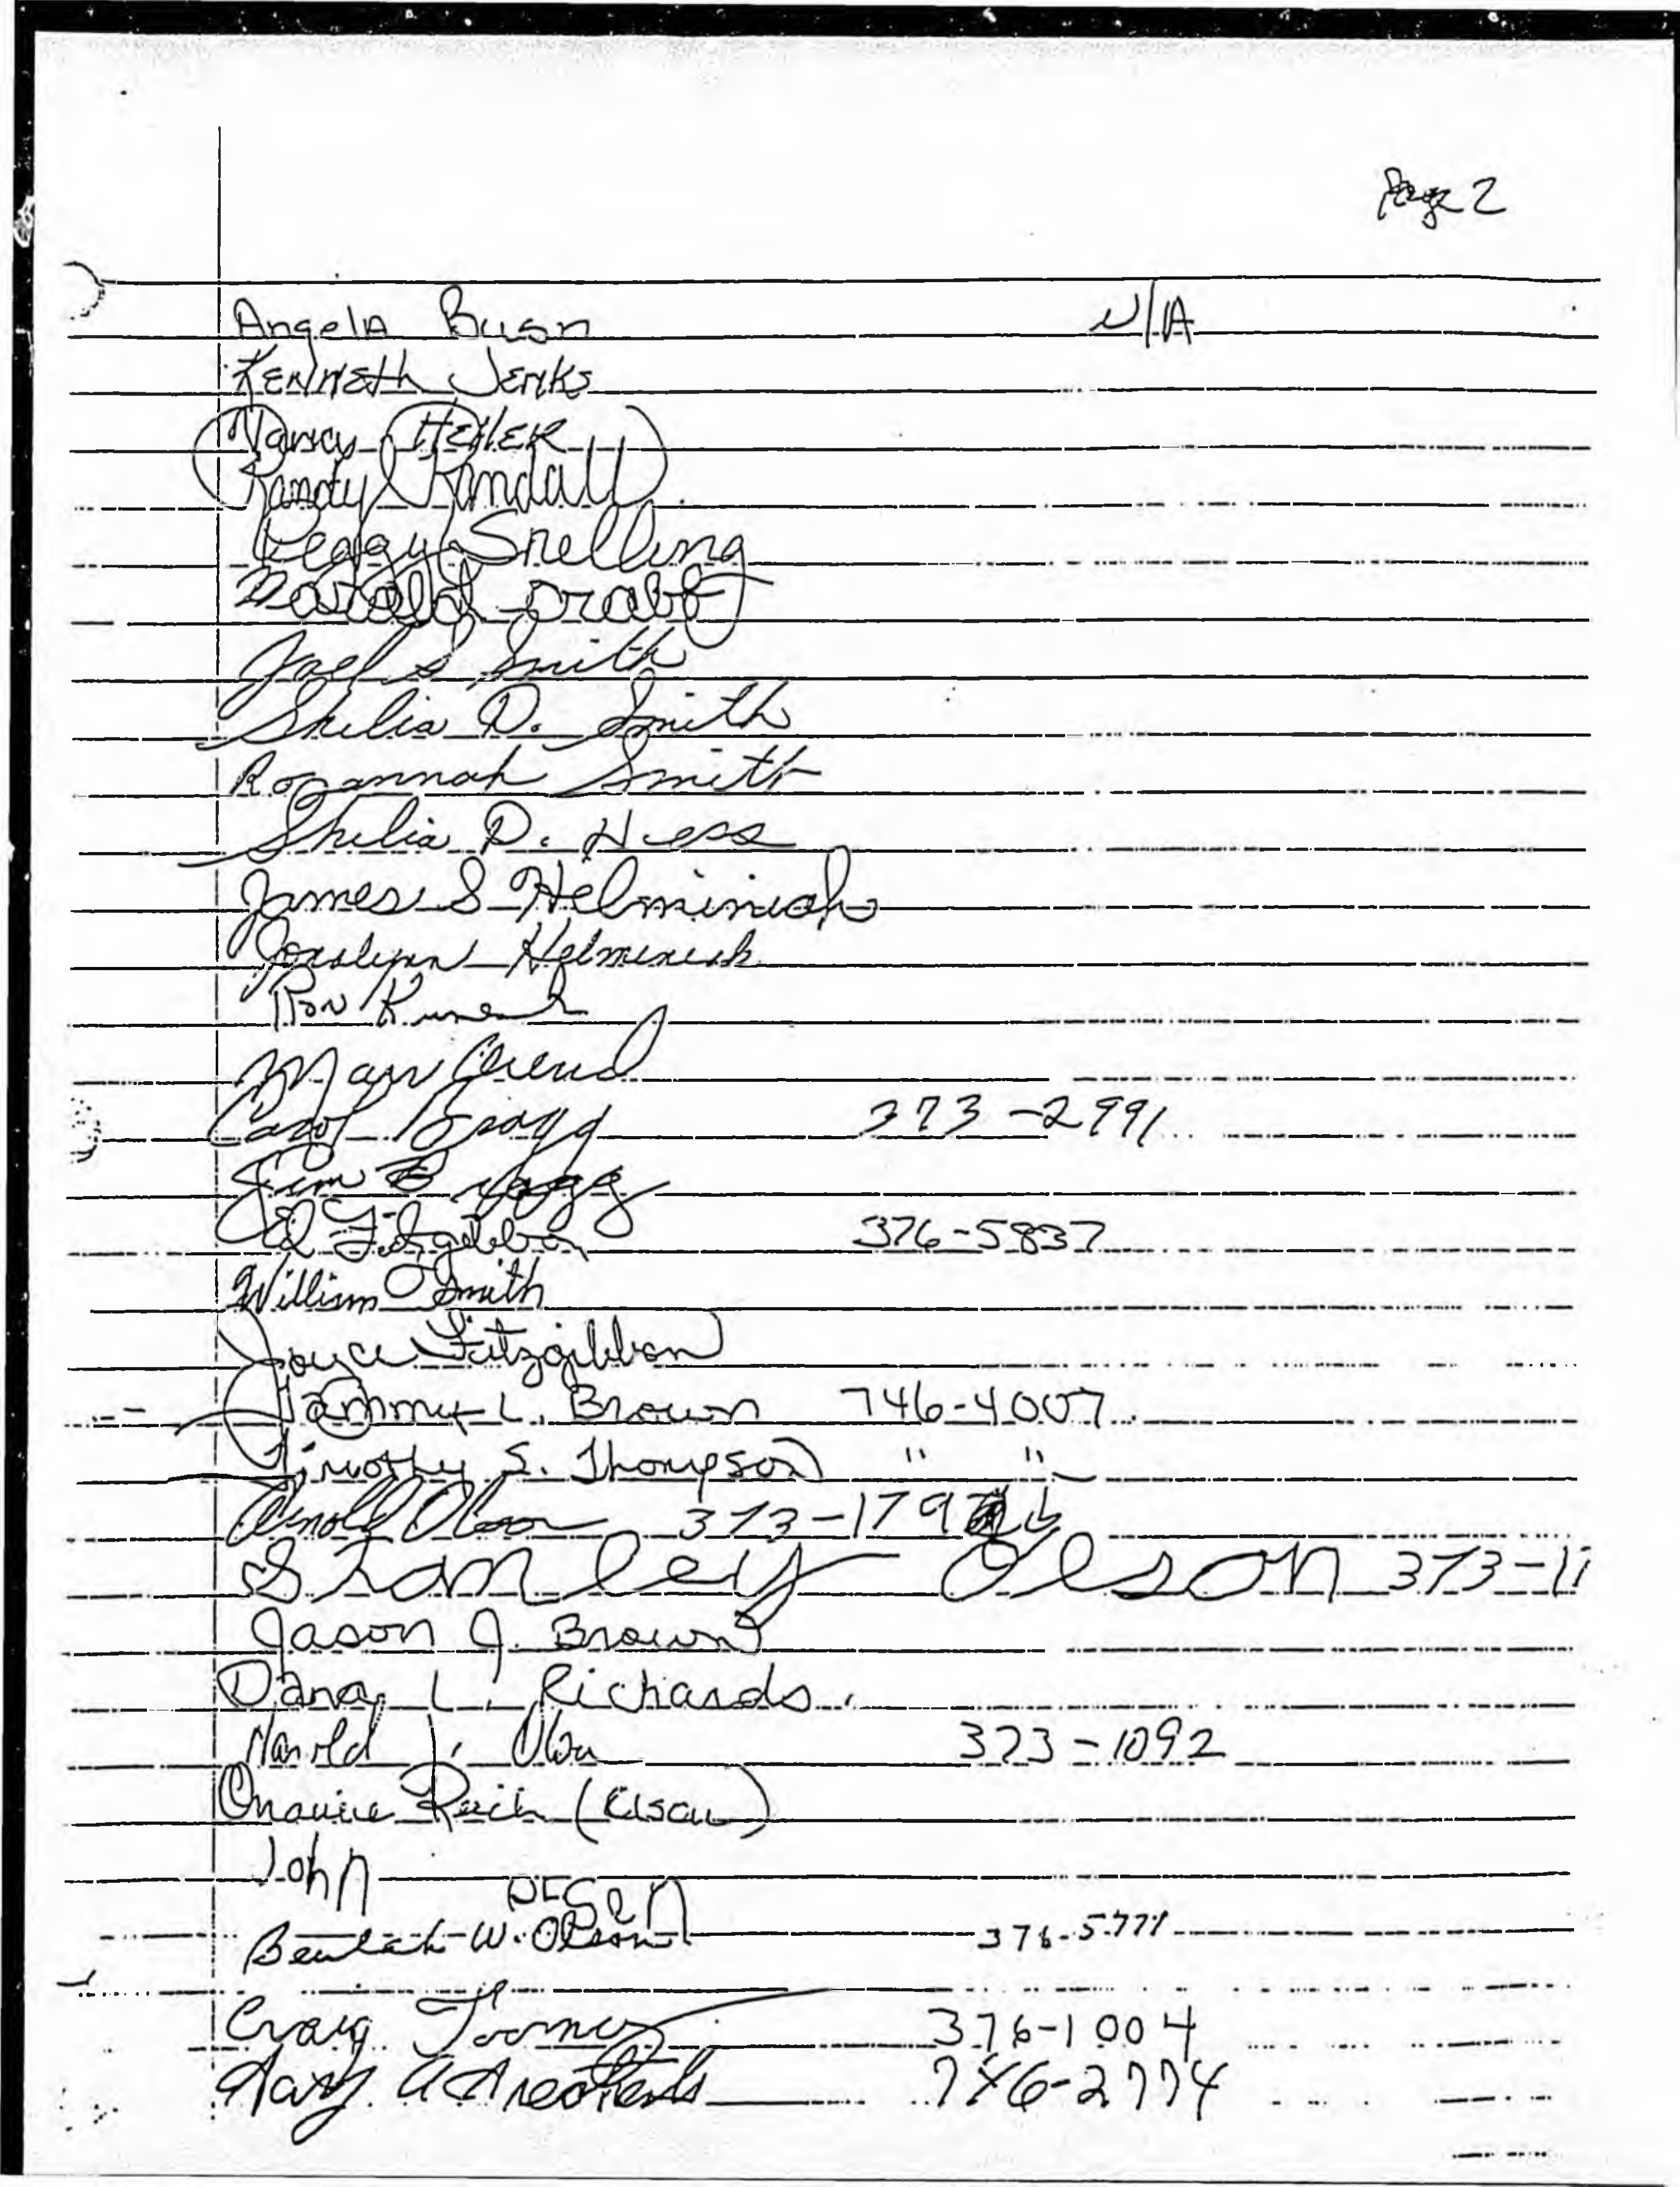 Page 2
Angela Bush N/A
Kenneth Jenks
Nancy Heiler
Randy Randall
Peggy Snelling
Harold
Joel S Smith
Shelia D. Smith
Roxannah Smith
Shelia D. Hess
James S Helminiak
Joralynn Helminiak
Ron
Mary
Carol Bragg 373-2991
Jim Bragg
Ed Fitzgibbon 376-5837
William Smith
Joyce Fitzgibbon
Tammy L. Brown 746-4007
Timothy S. Thompson " "
Arnold Olson 373-179
Stanley Olson 373-11
Jason J. Brown
Dana L. Richards
Harold J. Olson 373-1092
Reich
John
Olson
Beulah W. Olson 376-5771
Craig Toomey 376-1004
Gary 746-2774